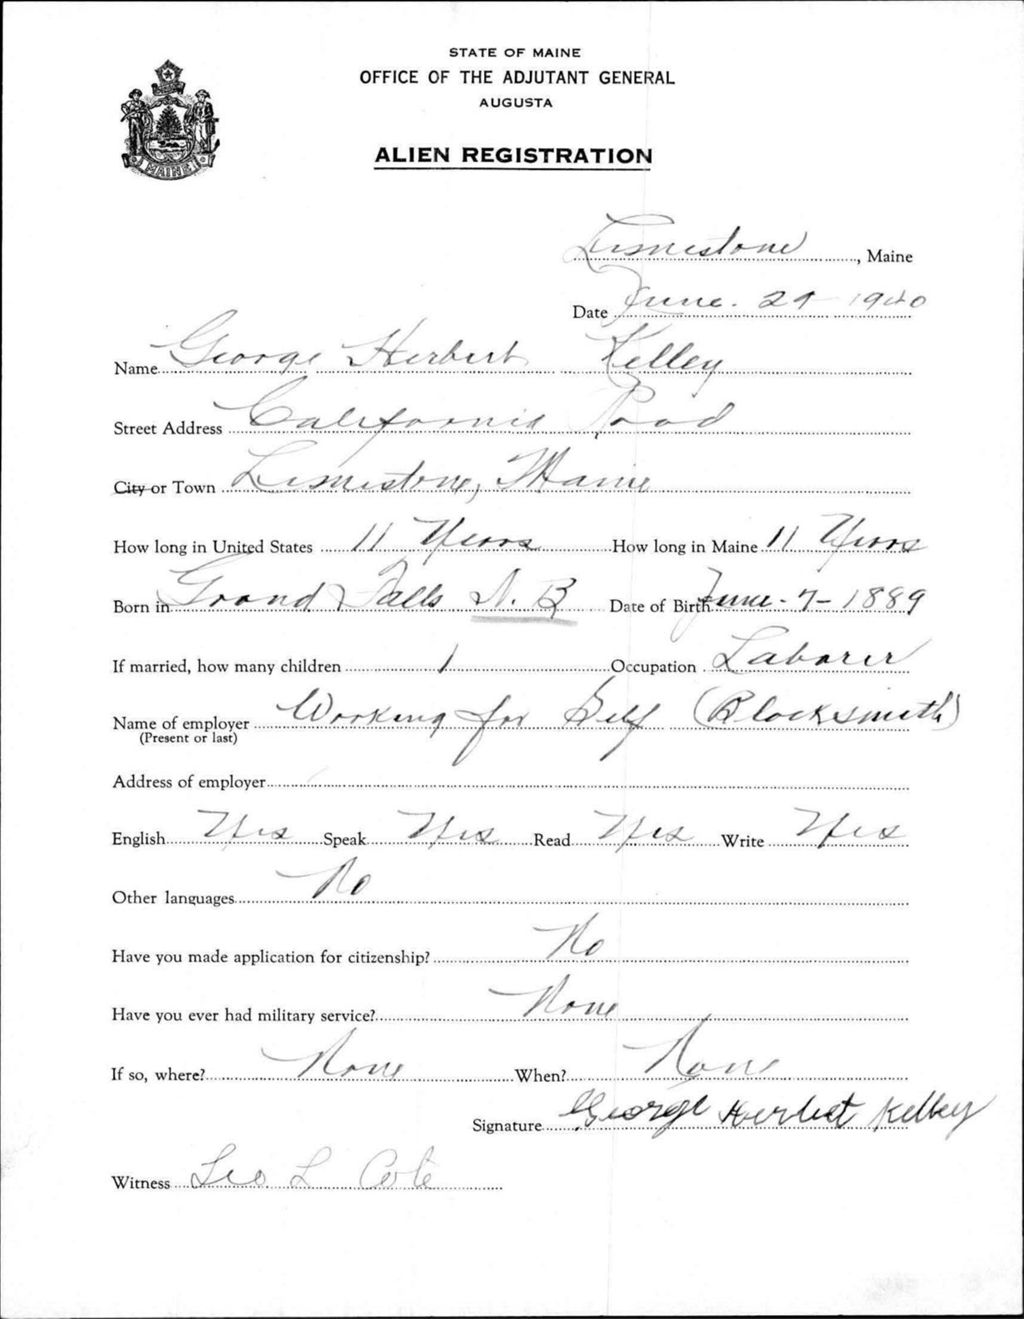 STATE OF MAINE
OFFICE OF THE ADJUTANT GENERAL
AUGUSTA
ALIEN REGISTRATION
MAINE
Limestone, Maine
Date June. 29 1940
Name George Herbert Kelley
Street Address California Road
City or Town Limestone, Maine
How long in United States 11 Years How long in Maine 11 Years
Born in Grand Falls N. B Date of Birth June-7-1889
If married, how many children 1 Occupation Laborer
Name of employer Working for Self (Blacksmith)
(Present or last)
Address of employer
English Yes Speak Yes Read Yes Write Yes
Other languages No
Have you made application for citizenship? No
Have you ever had military service? None
If so, where? None When? None
Signature George Herbert Kelley
Witness Leo L Cote